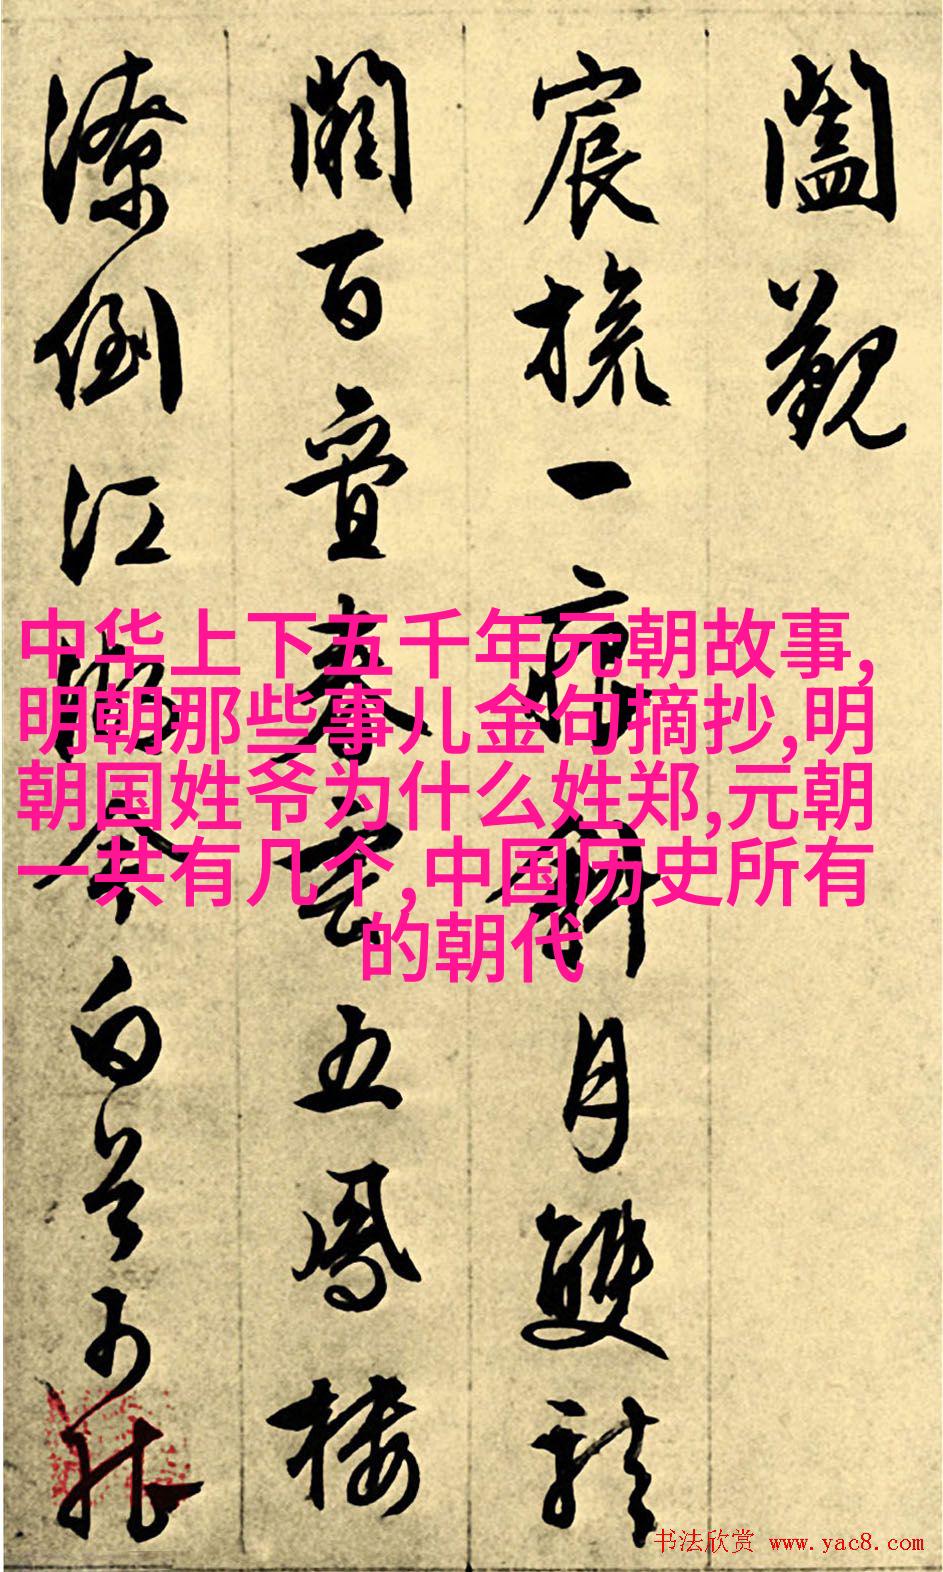 闔觀
宸旒一痕斜月雙龍
闕百疊春雲五鳳樓
潦倒江湖今白首可能
中华上下五千年元朝故事,
明朝那些事儿金句摘抄,明
朝国姓爷为什么姓郑,元朝
一共有几个,中国历史所有
的朝代
书法欣赏 www.yac8.com